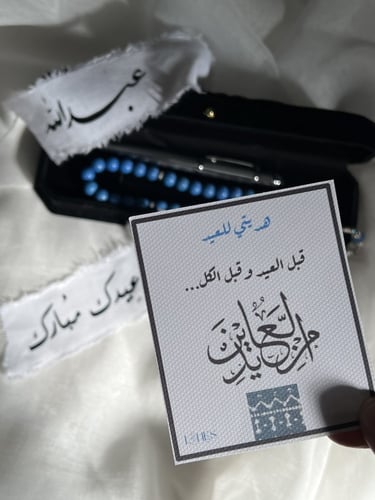 عبدالله
هديتي للعيد
قبل العيد و قبل الكل...
من العايدين
عيدك مبارك